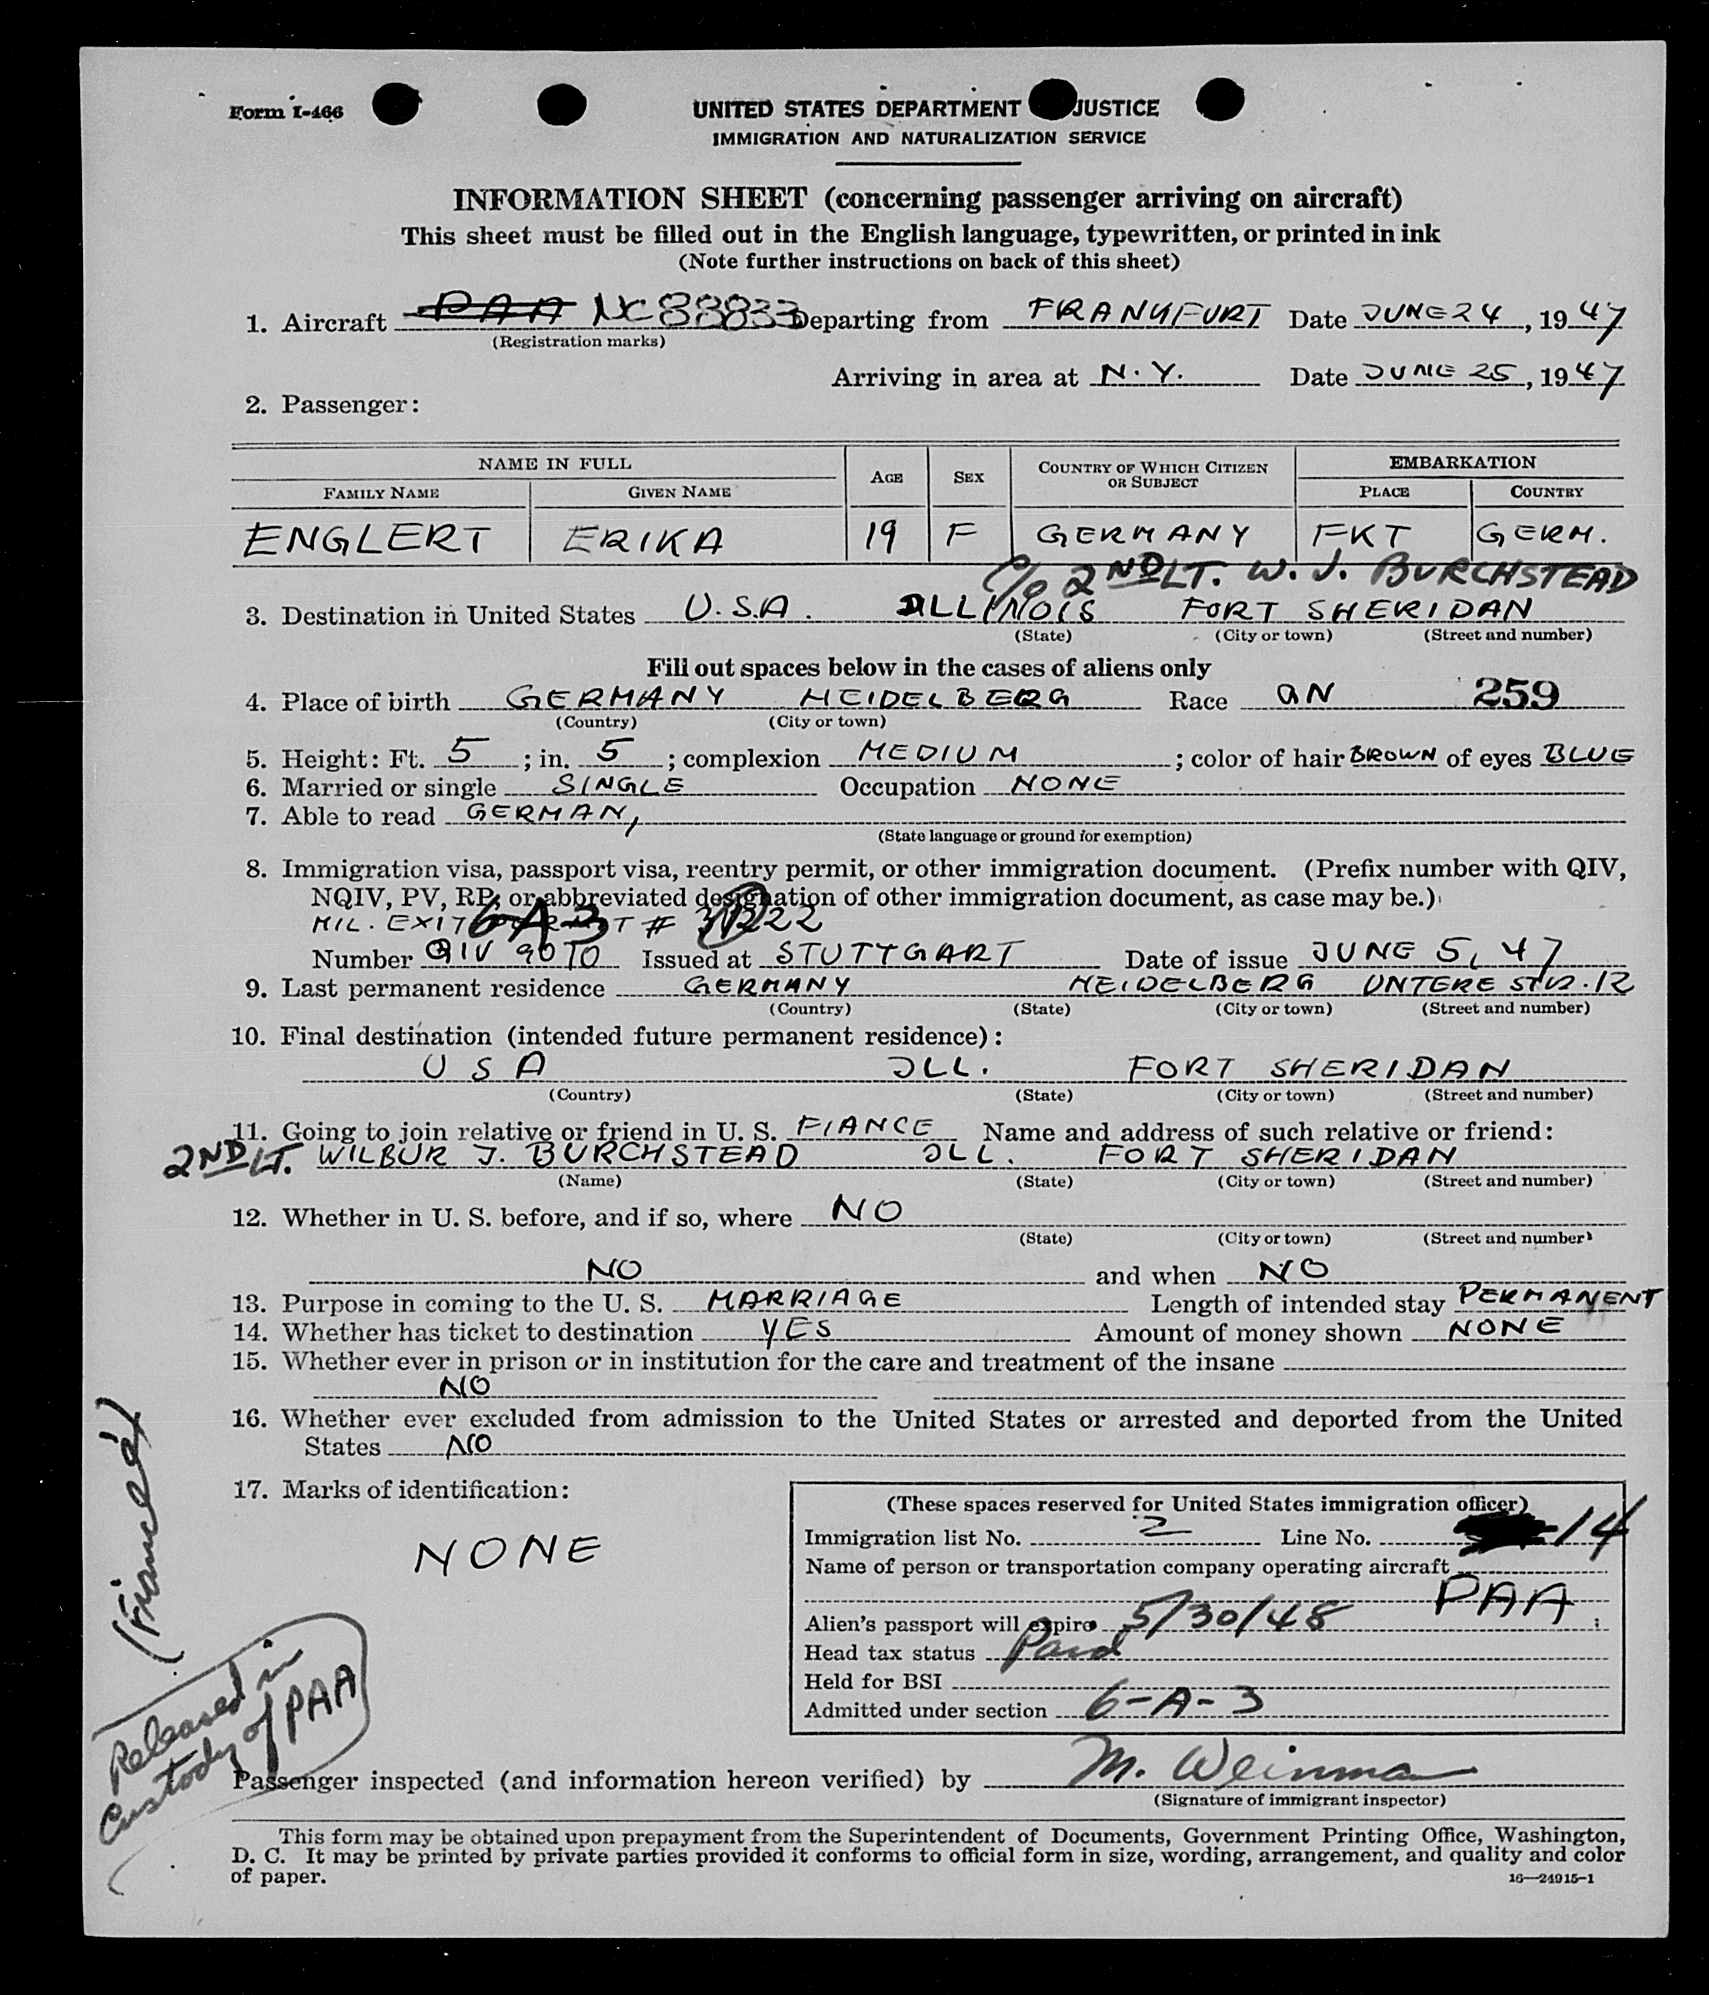 Form I-466
UNITED STATES DEPARTMENT JUSTICE
IMMIGRATION AND NATURALIZATION SERVICE
INFORMATION SHEET (concerning passenger arriving on aircraft)
This sheet must be filled out in the English language, typewritten, or printed in ink
(Note further instructions on back of this sheet)
1. Aircraft PAA NC88833 Departing from FRANKFURT Date JUNE 24, 1947
(Registration marks)
Arriving in area at N.Y. Date JUNE 25, 1947
2. Passenger:
NAME IN FULL AGE SEX COUNTRY OF WHICH CITIZEN OR SUBJECT EMBARKATION
FAMILY NAME GIVEN NAME PLACE COUNTRY
ENGLERT ERIKA 19 F GERMANY FKT GERM.
C/O 2ND LT. W. J. BURCHSTEAD
3. Destination in United States U.S.A. ILLINOIS FORT SHERIDAN
(State) (City or town) (Street and number)
Fill out spaces below in the cases of aliens only
4. Place of birth GERMANY HEIDELBERG Race 259
(Country) (City or town)
5. Height: Ft. 5; in. 5; complexion MEDIUM; color of hair BROWN of eyes BLUE
6. Married or single SINGLE Occupation NONE
7. Able to read GERMAN,
(State language or ground for exemption)
8. Immigration visa, passport visa, reentry permit, or other immigration document. (Prefix number with QIV,
NQIV, PV, RP, or abbreviated designation of other immigration document, as case may be.)
MIL. EXIT 6-A-3 #
Number QIV Issued at STUTTGART Date of issue JUNE 5, 47
9. Last permanent residence GERMANY HEIDELBERG UNTERE STR. 12
(Country) (State) (City or town) (Street and number)
10. Final destination (intended future permanent residence):
USA ILL. FORT SHERIDAN
(Country) (State) (City or town) (Street and number)
11. Going to join relative or friend in U. S. FIANCE Name and address of such relative or friend:
2ND LT. WILBUR J. BURCHSTEAD ILL. FORT SHERIDAN
(Name) (State) (City or town) (Street and number)
12. Whether in U. S. before, and if so, where NO
(State) (City or town) (Street and number)
NO and when NO
13. Purpose in coming to the U. S. MARRIAGE Length of intended stay PERMANENT
14. Whether has ticket to destination YES Amount of money shown NONE
15. Whether ever in prison or in institution for the care and treatment of the insane
NO
16. Whether ever excluded from admission to the United States or arrested and deported from the United
States NO
17. Marks of identification:
NONE
(Fiancé)
Released in
Custody of PAA
(These spaces reserved for United States immigration officer)
Immigration list No. 2 Line No. 14
Name of person or transportation company operating aircraft
PAA
Alien's passport will expire 5/30/48
Head tax status Paid
Held for BSI
Admitted under section 6-A-3
Passenger inspected (and information hereon verified) by M. Weinman
(Signature of immigrant inspector)
This form may be obtained upon prepayment from the Superintendent of Documents, Government Printing Office, Washington,
D. C. It may be printed by private parties provided it conforms to official form in size, wording, arrangement, and quality and color
of paper.
16—24915-1